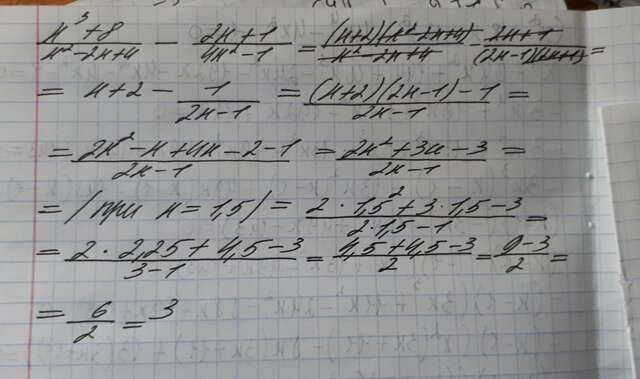 (x³+8)/(x²-2x+4) - (2x+1)/(4x²-1) = ((x+2)(x²-2x+4))/(x²-2x+4) - (2x+1)/((2x-1)(2x+1)) =
= x+2 - 1/(2x-1) = ((x+2)(2x-1)-1)/(2x-1) =
= (2x²-x+4x-2-1)/(2x-1) = (2x²+3x-3)/(2x-1) =
= /при x=1,5/ = (2·1,5²+3·1,5-3)/(2·1,5-1) =
= (2·2,25+4,5-3)/(3-1) = (4,5+4,5-3)/2 = (9-3)/2 =
= 6/2 = 3